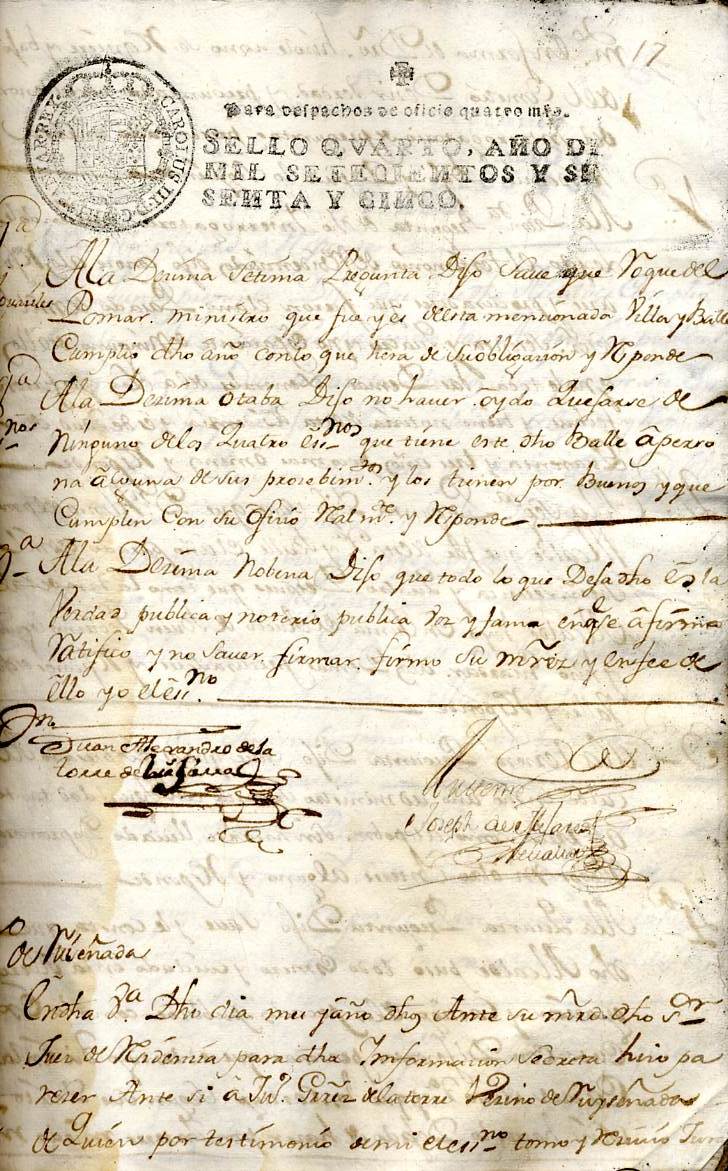 17
CAROLUS III D G HISPANIAR REX
Para despachos de oficio quatro mrs.
SELLO QVARTO, AÑO DE
MIL SETECIENTOS Y SE
SENTA Y CINCO.
Ala Dezima Setima Pregunta Dijo Save que Roque del
Pomar. ministro que fue y es de esta mencionada Villa y Balle
Cumplio dho año con lo que hera de su obligazion y Rponde
Ala Dezima Otaba Dijo no haver oydo Quejarse de
Ninguno de los Quatro essnos que tiene este dho Balle â perso
na alguna de sus prozedimtos y los tienen por Buenos y que
Cumplen Con su Ofizio Y Rponde
Ala Dezima Nobena Dijo que todo lo que Deja dho es la
Verdad publica y notorio publica Voz y fama en qe â firma
Ratifico y no saver firmar. firmo su mrz y en fee de
ello yo el essno
Juan Alexandro de la
torre de
Antemi
Joseph de
de Ruiseñada
En dha Va Dho dia mes y año dhos Ante su mrd. dho sor
Juez de Rsidenzia para dha Informazion Secreta hizo pa
rezer Ante si â Ju. de la torre Vezino de Ruyseñada
de Quien por testimonio de mi el essno tomo y Rzivio Jur